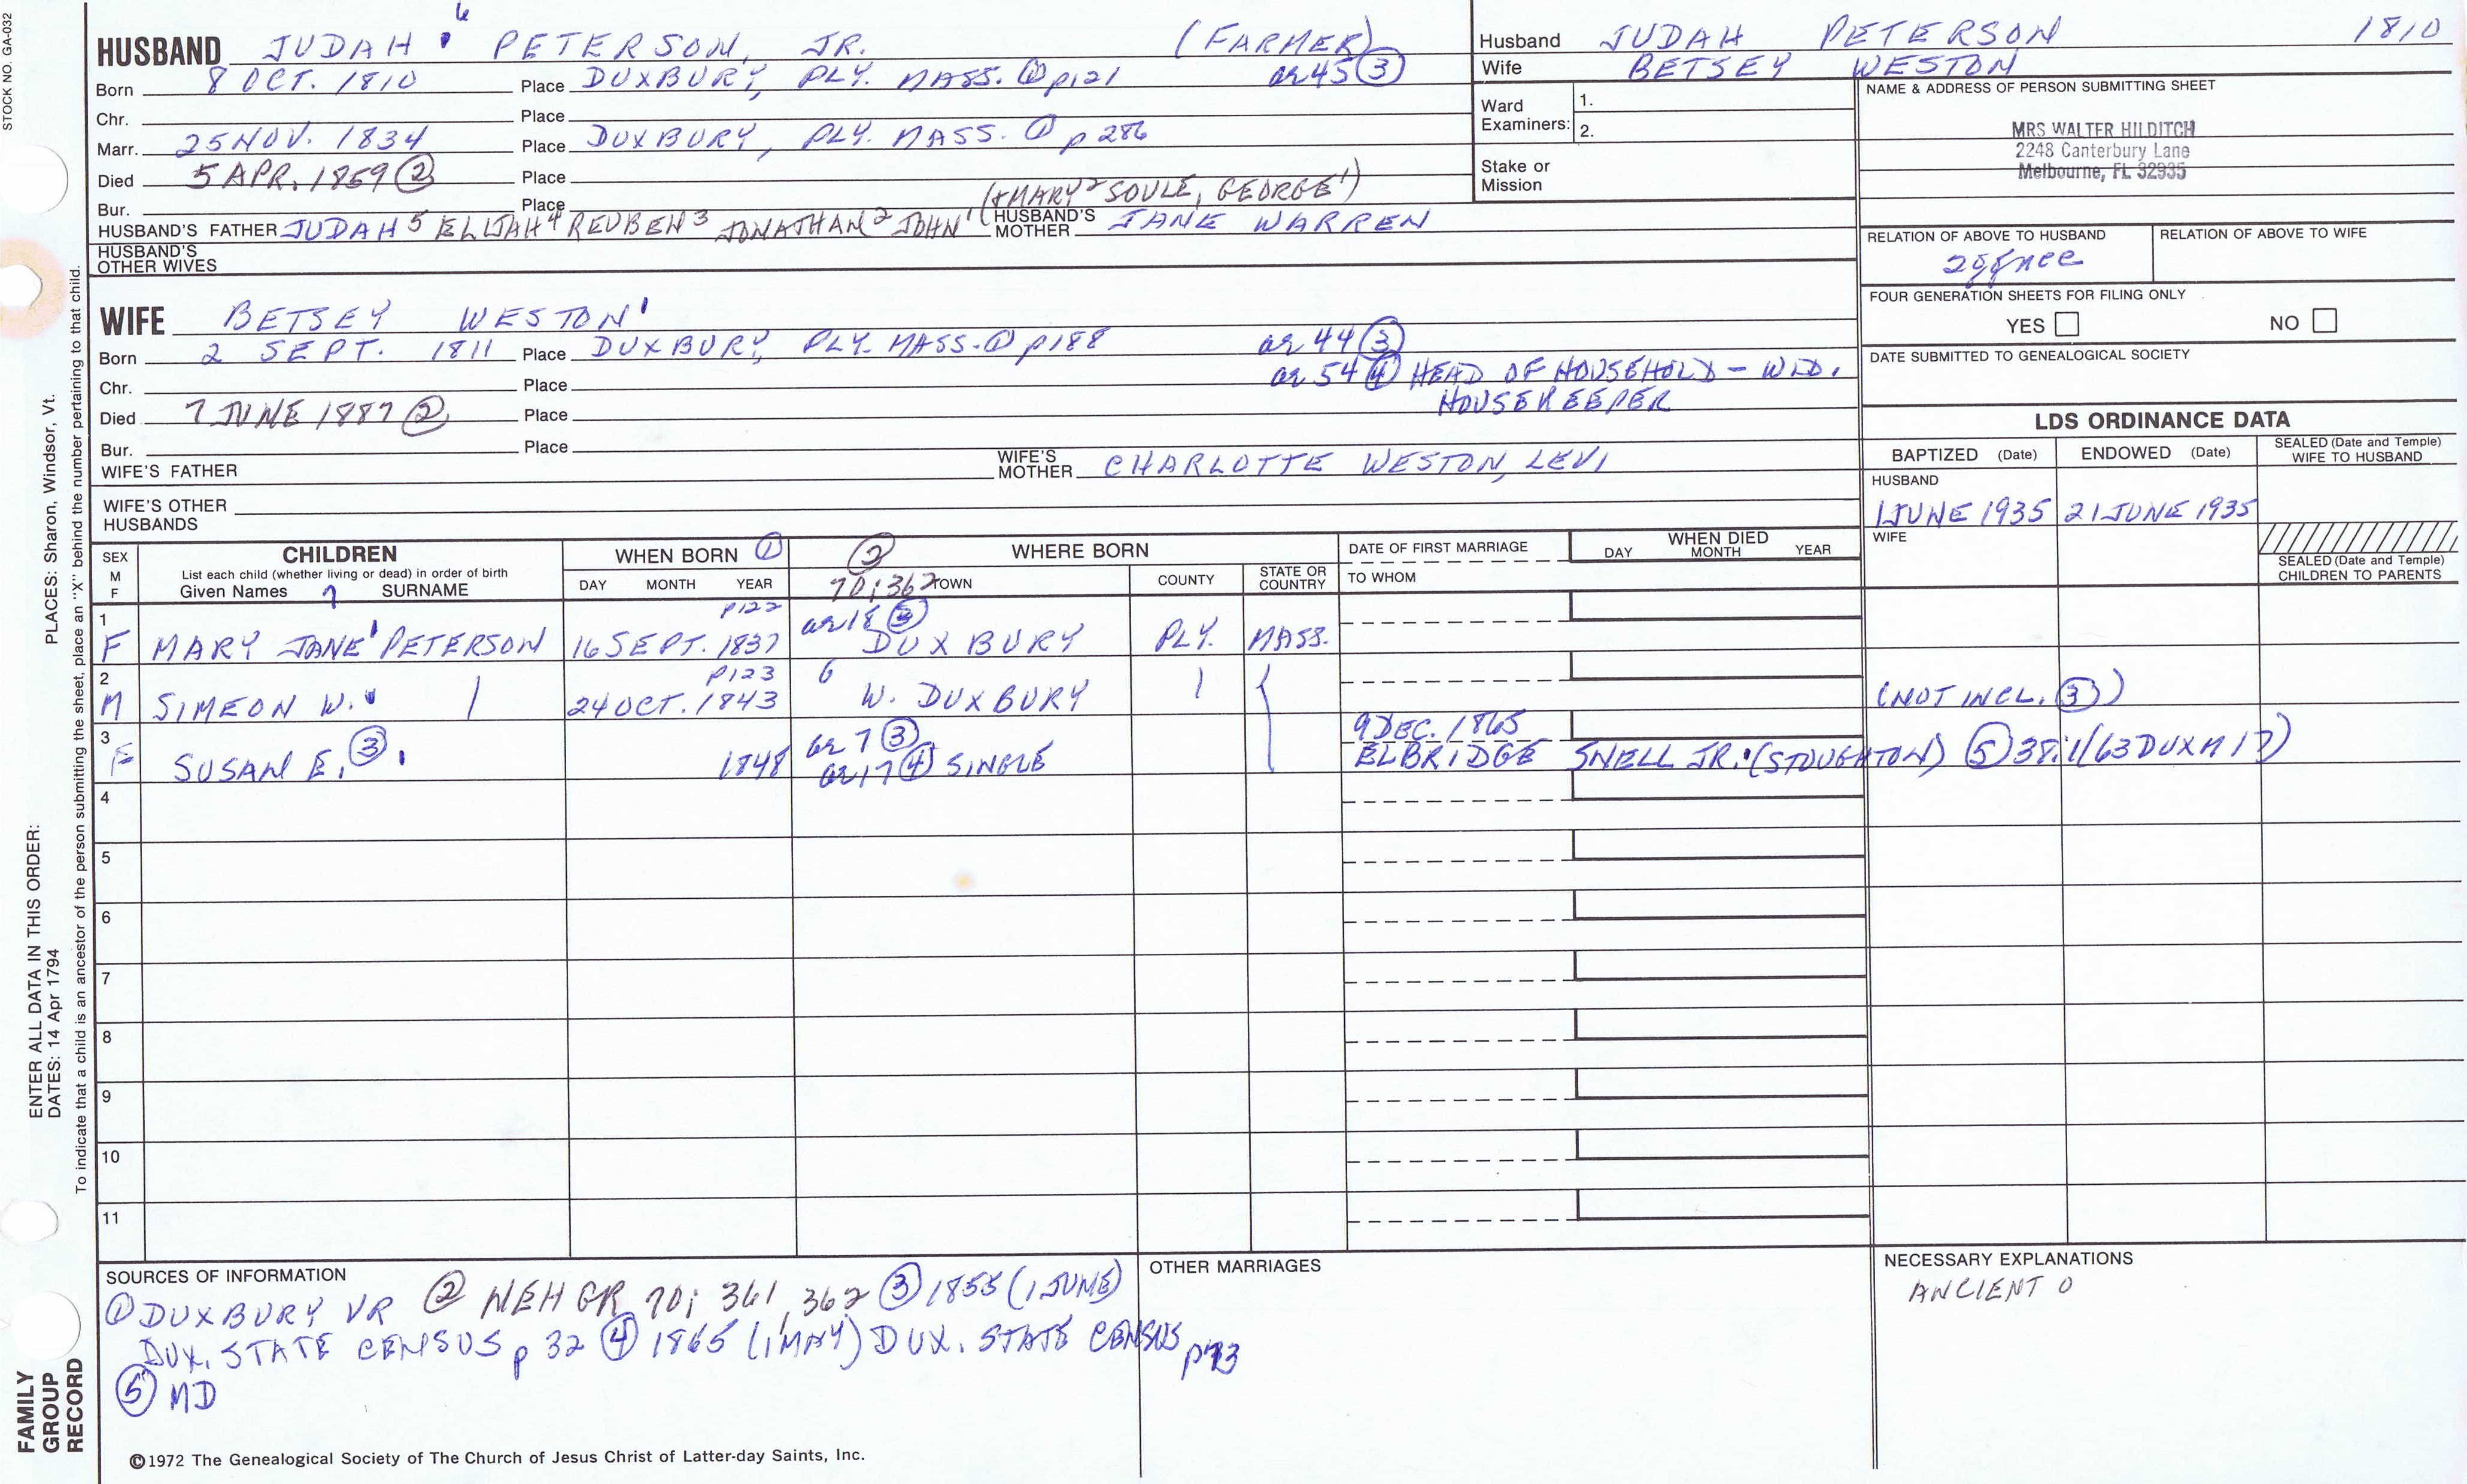 STOCK NO. GA-032
HUSBAND JUDAH 6 PETERSON, JR. (FARMER)
Born 8 OCT. 1810 Place DUXBURY, PLY. MASS. ① p121 ae 45 ③
Chr. Place
Marr. 25 NOV. 1834 Place DUXBURY, PLY. MASS. ① p 286
Died 5 APR. 1859 ② Place
Bur. Place (+MARY 2 SOULE, GEORGE 1)
HUSBAND'S FATHER JUDAH 5 ELIJAH 4 REUBEN 3 JONATHAN 2 JOHN 1 HUSBAND'S MOTHER JANE WARREN
HUSBAND'S OTHER WIVES
Husband JUDAH PETERSON 1810
Wife BETSEY WESTON
Ward Examiners: 1.
2.
Stake or Mission
NAME & ADDRESS OF PERSON SUBMITTING SHEET
MRS WALTER HILDITCH
2248 Canterbury Lane
Melbourne, FL 32935
RELATION OF ABOVE TO HUSBAND RELATION OF ABOVE TO WIFE
FOUR GENERATION SHEETS FOR FILING ONLY
YES NO
DATE SUBMITTED TO GENEALOGICAL SOCIETY
WIFE BETSEY WESTON
Born 2 SEPT. 1811 Place DUXBURY, PLY. MASS. ① p188 ae 44 ③
Chr. Place ae 54 ④ HEAD OF HOUSEHOLD - WID.
HOUSEKEEPER
Died 7 JUNE 1887 ② Place
Bur. Place
WIFE'S FATHER WIFE'S MOTHER CHARLOTTE WESTON, LEVI
WIFE'S OTHER HUSBANDS
LDS ORDINANCE DATA
BAPTIZED (Date) ENDOWED (Date) SEALED (Date and Temple) WIFE TO HUSBAND
HUSBAND
1 JUNE 1935 21 JUNE 1935
WIFE
SEALED (Date and Temple) CHILDREN TO PARENTS
SEX M F
CHILDREN
List each child (whether living or dead) in order of birth
Given Names 7 SURNAME
WHEN BORN ①
DAY MONTH YEAR
② 70:362
WHERE BORN
TOWN COUNTY STATE OR COUNTRY
DATE OF FIRST MARRIAGE
TO WHOM
WHEN DIED
DAY MONTH YEAR
1 p122 ae 18 ③
F MARY JANE PETERSON 16 SEPT. 1837 DUXBURY PLY. MASS.
2 p123 6
M SIMEON W. 24 OCT. 1843 W. DUXBURY (NOT INCL. ③)
3 ae 7 ③ 9 DEC. 1865
F SUSAN E. ③ 1848 ae 17 ④ SINGLE ELBRIDGE SNELL JR. (STOUGHTON) ⑤ 38:1 (63 DUX M 17)
4
5
6
7
8
9
10
11
SOURCES OF INFORMATION
① DUXBURY VR ② NEHGR 70: 361, 362 ③ 1855 (1 JUNE)
DUX. STATE CENSUS p 32 ④ 1865 (1 MAY) DUX. STATE CENSUS
⑤ MD
OTHER MARRIAGES
NECESSARY EXPLANATIONS
ANCIENT O
©1972 The Genealogical Society of The Church of Jesus Christ of Latter-day Saints, Inc.
ENTER ALL DATA IN THIS ORDER:
DATES: 14 Apr 1794
PLACES: Sharon, Windsor, Vt.
To indicate that a child is an ancestor of the person submitting the sheet, place an "X" behind the number pertaining to that child.
FAMILY
GROUP
RECORD